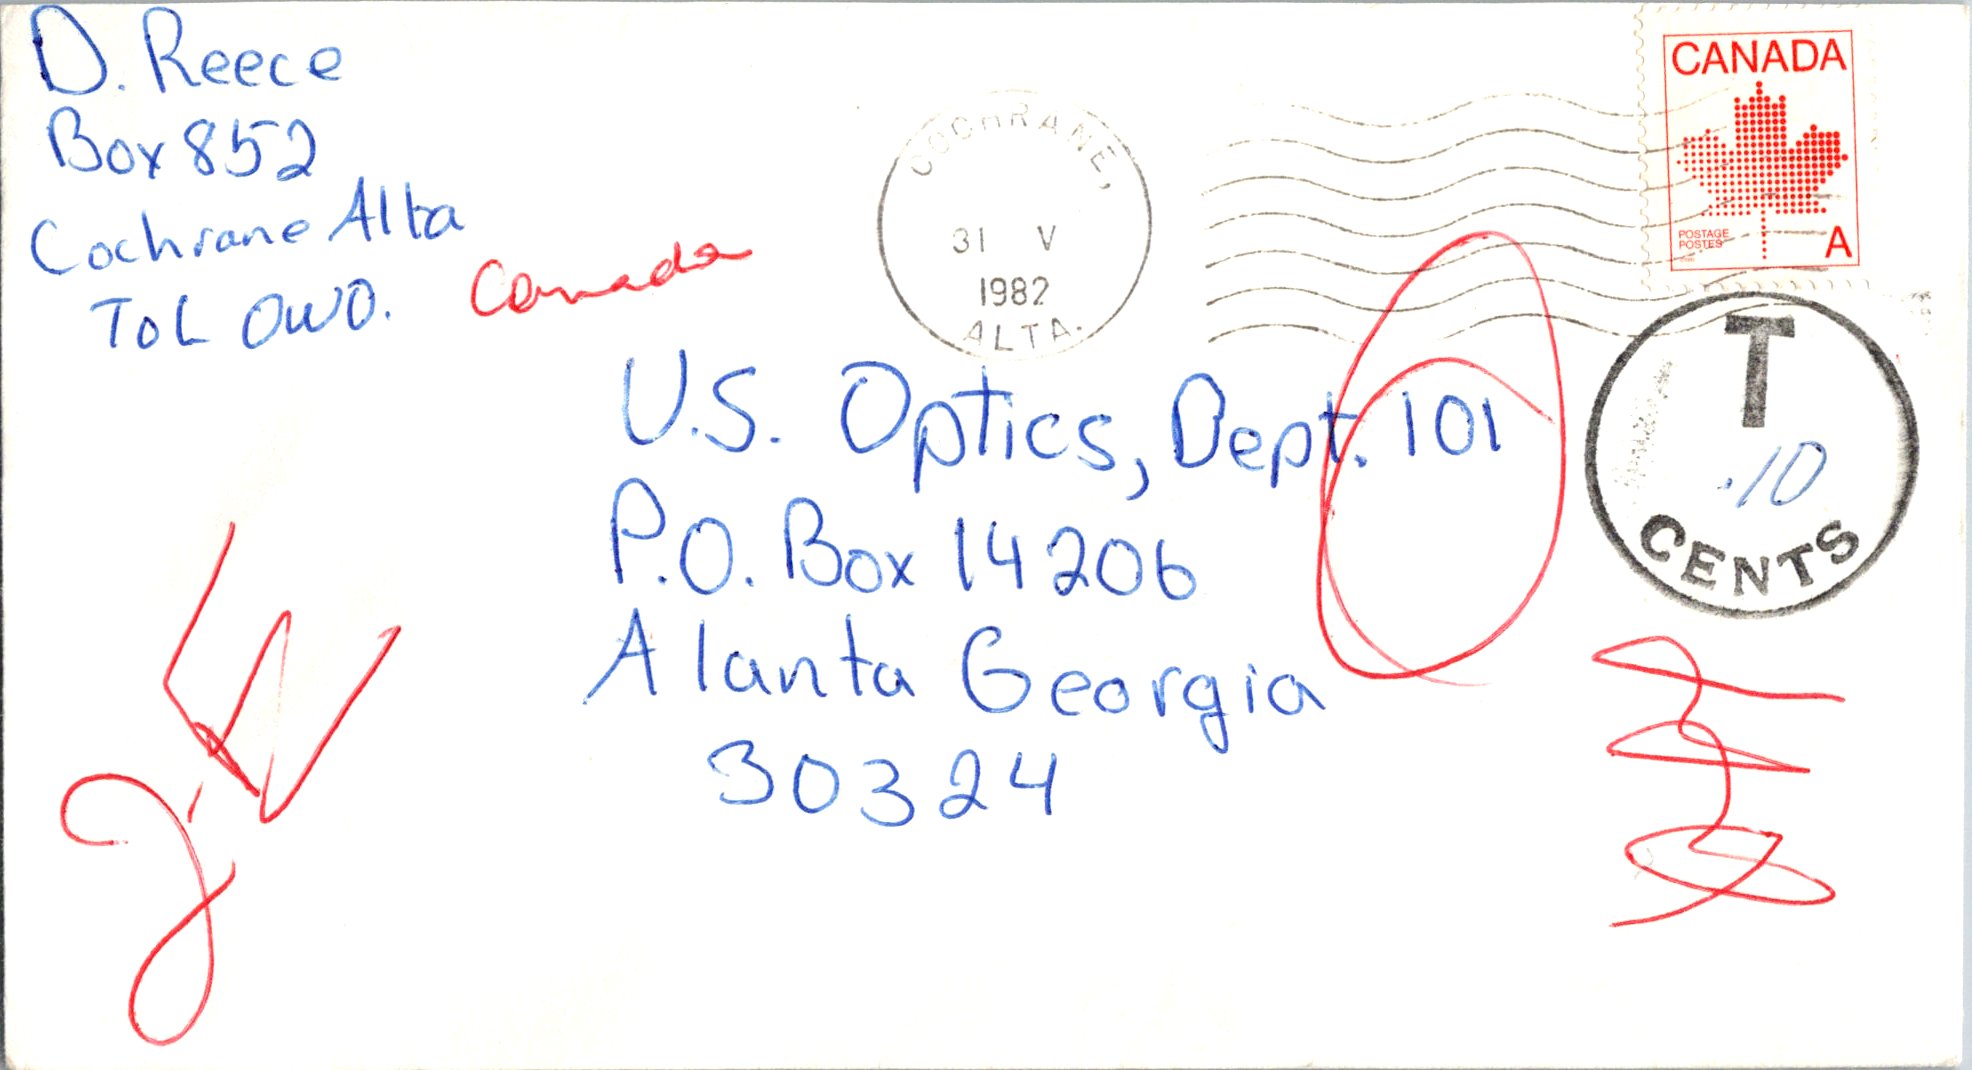 D. Reece
Box 852
Cochrane Alta
ToL OWO.
Canada
COCHRANE,
31 V
1982
ALTA.
CANADA
POSTAGE
POSTES
A
T
.10
CENTS
U.S. Optics, Dept. 101
P.O. Box 14206
Alanta Georgia
30324